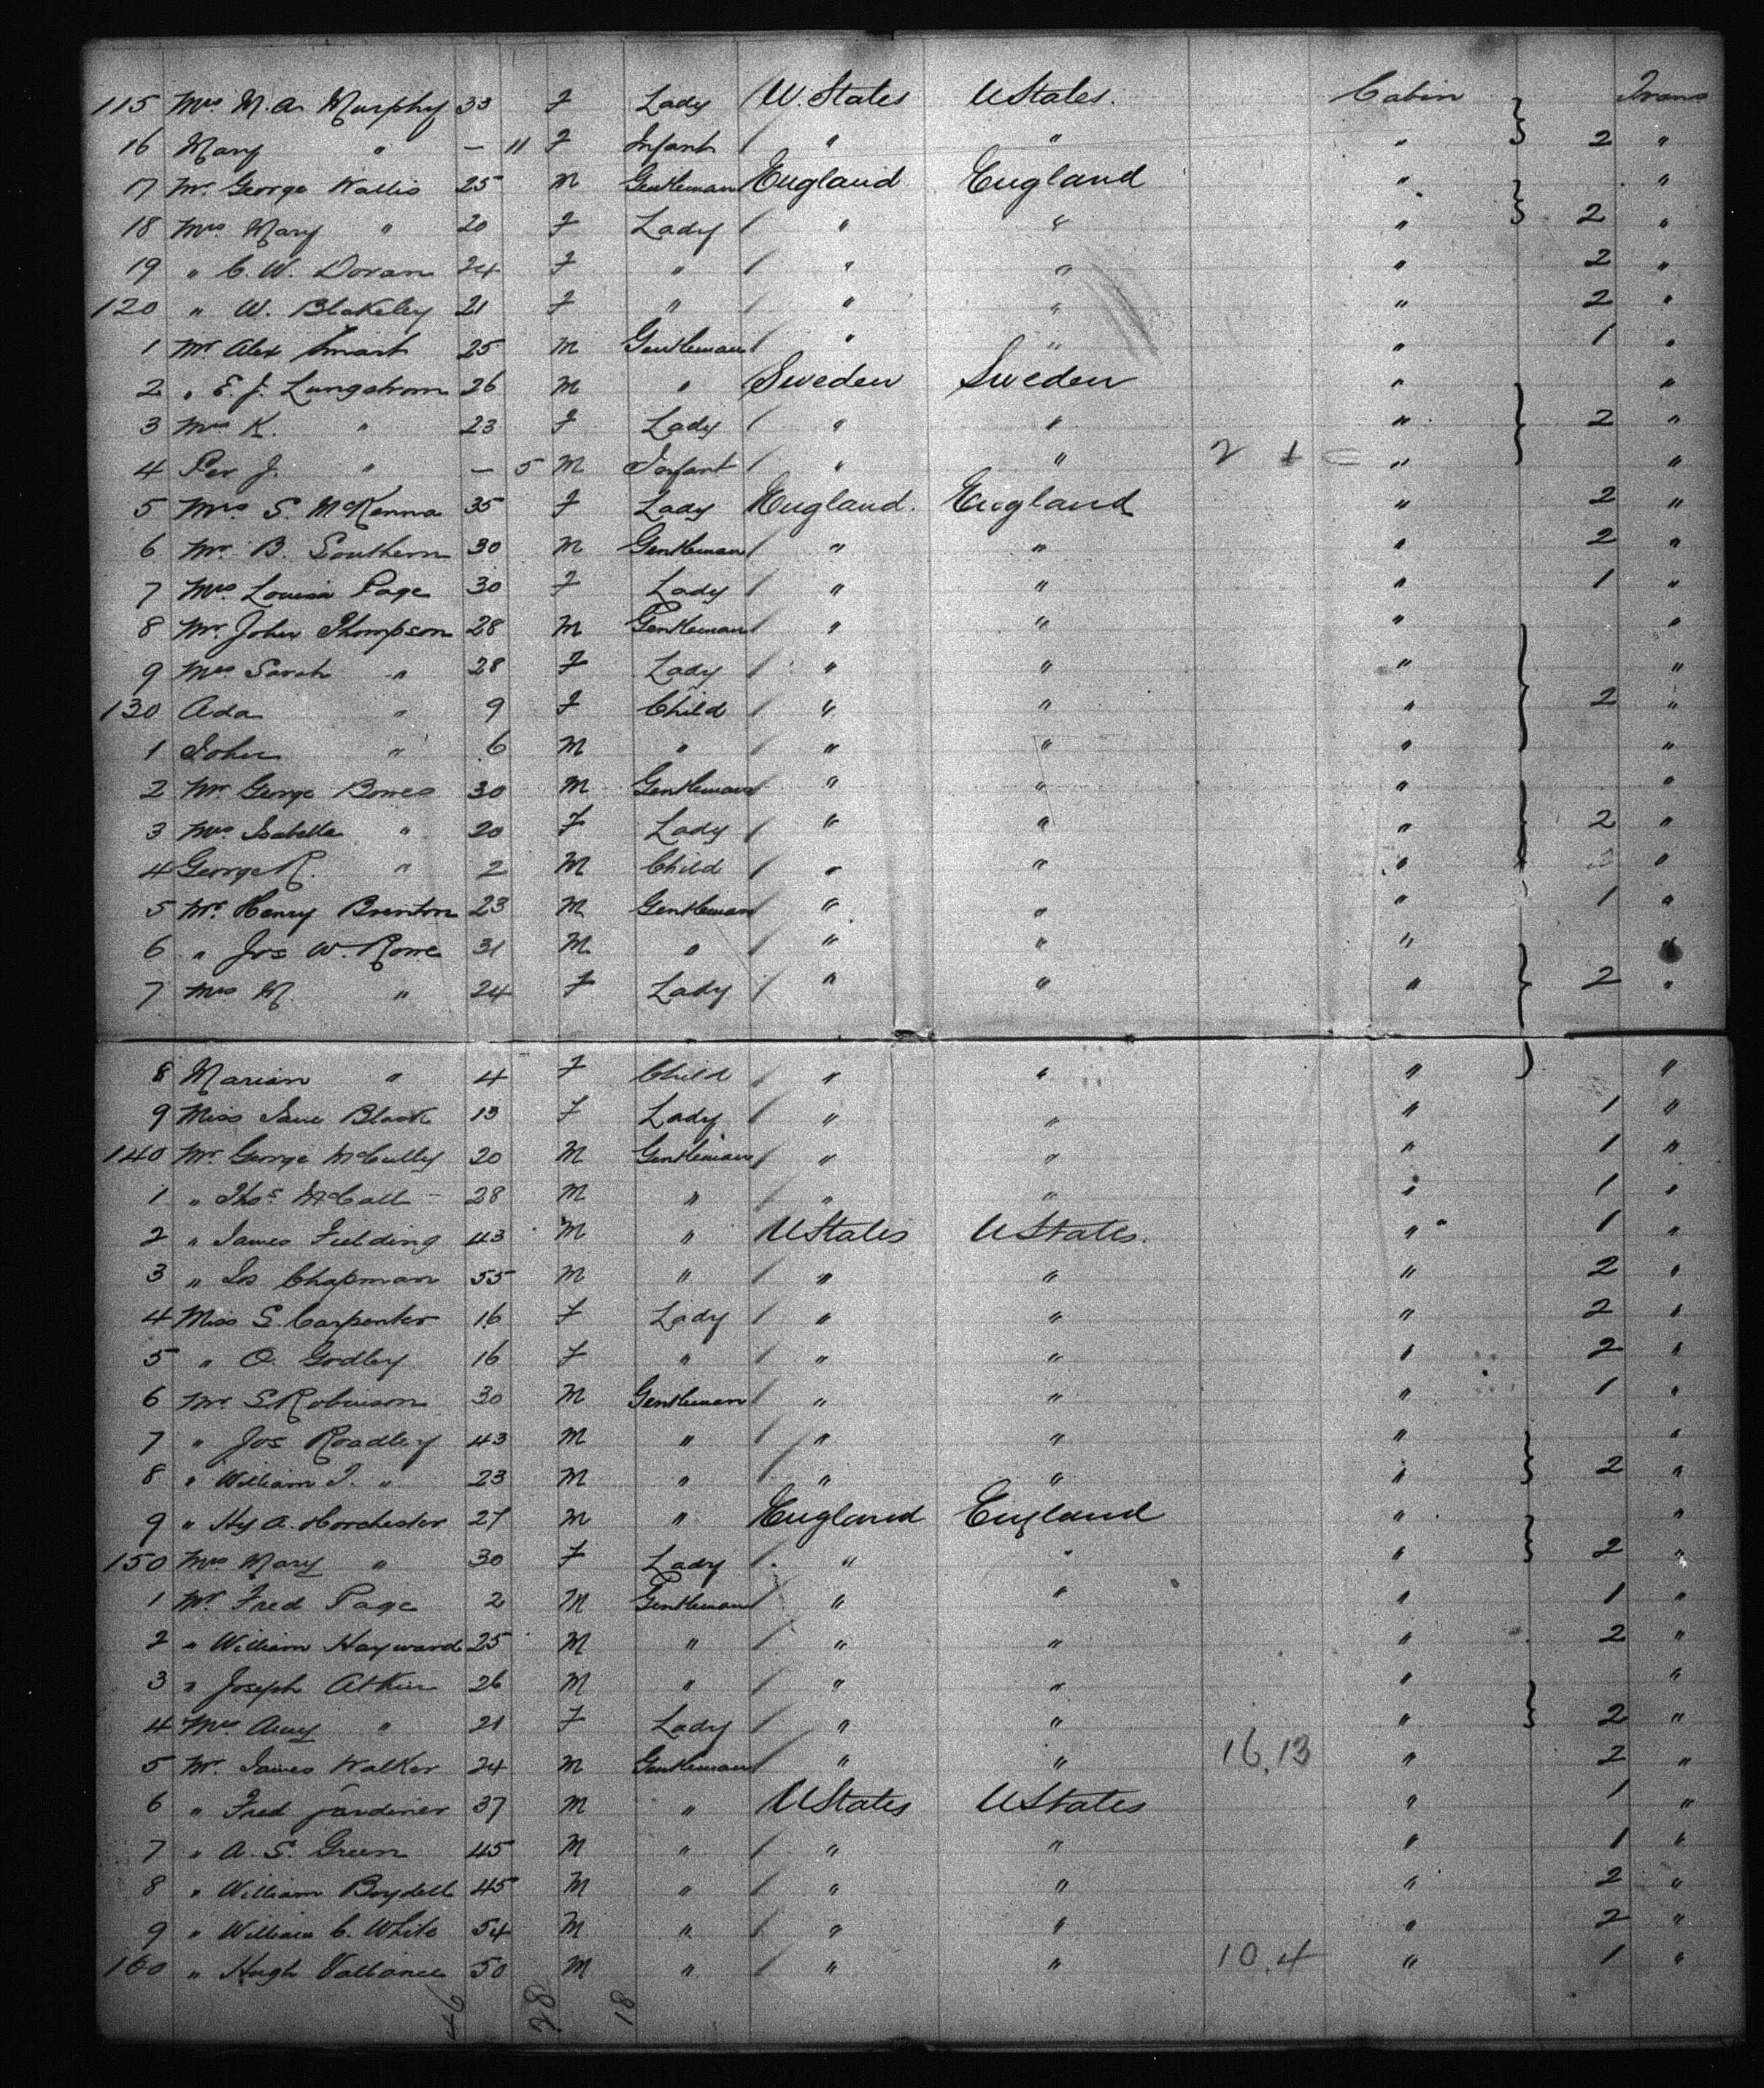 115 Mrs M. A. Murphy 33 F Lady U. States U States. Cabin Trans
16 Mary " — 11 F Infant " " " 2 "
17 Mr. George Wallis 25 M Gentleman England England " "
18 Mrs Mary " 20 F Lady " " " 2 "
19 " C. W. Doran 24 F " " " " 2 "
120 " W. Blakeley 21 F " " " " 2 "
1 Mr Alex Smart 25 M Gentleman " " " 1 "
2 " E. J. Lungstrom 26 M " Sweden Sweden " "
3 Mrs K. " 23 F Lady " " " 2 "
4 Per J. " — 5 M Infant " " 2 1 " "
5 Mrs. S. McKenna 35 F Lady England. England " 2 "
6 Mr. B. Southern 30 M Gentleman " " " 2 "
7 Mrs. Louisa Page 30 F Lady " " " 1 "
8 Mr. John Thompson 28 M Gentleman " " " "
9 Mrs Sarah " 28 F Lady " " " "
130 Ada " 9 F Child " " " 2 "
1 John " 6 M " " " " "
2 Mr George Bowes 30 M Gentleman " " " "
3 Mrs Isabella " 20 F Lady " " " 2 "
4 George R. " 2 M Child " " " "
5 Mr. Henry Brenton 23 M Gentleman " " " 1 "
6 " Jos W. Rowe 31 M " " " " "
7 Mrs M. " 24 F Lady " " " 2 "
8 Marian " 4 F Child " " " "
9 Miss Jane Black 13 F Lady " " " 1 "
140 Mr George McCully 20 M Gentleman " " " 1 "
1 " Thos. McCall 28 M " " " " 1 "
2 " James Fielding 43 M " U States U States. " 1 "
3 " Jos Chapman 55 M " " " " 2 "
4 Miss S. Carpenter 16 F Lady " " " 2 "
5 " O. Godley 16 F " " " " 2 "
6 Mr. S. Robinson 30 M Gentleman " " " 1 "
7 " Jos Roadley 43 M " " " " "
8 " William J. " 23 M " " " " 2 "
9 " Hy A. Horchester 27 M " England England " "
150 Mrs Mary " 30 F Lady " " " 2 "
1 Mr. Fred Page 2 M Gentleman " " " 1 "
2 " William Hayward 25 M " " " " 2 "
3 " Joseph Atkin 26 M " " " " "
4 Mrs Amy " 21 F Lady " " " 2 "
5 Mr. James Walker 24 M Gentleman " " 16.13 " 2 "
6 " Fred Jardiner 37 M " U States U States " 1 "
7 " A. S. Green 45 M " " " " 1 "
8 " William Boydell 45 M " " " " 2 "
9 " William C. White 54 M " " " " 2 "
160 " Hugh Vallance 50 M " " " 10.4 " 1 "
46 28 18